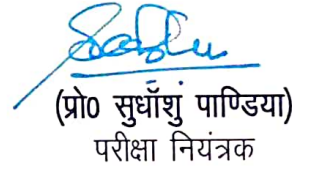 (प्रो0 सुधाँशुं पाण्डिया)
परीक्षा नियंत्रक